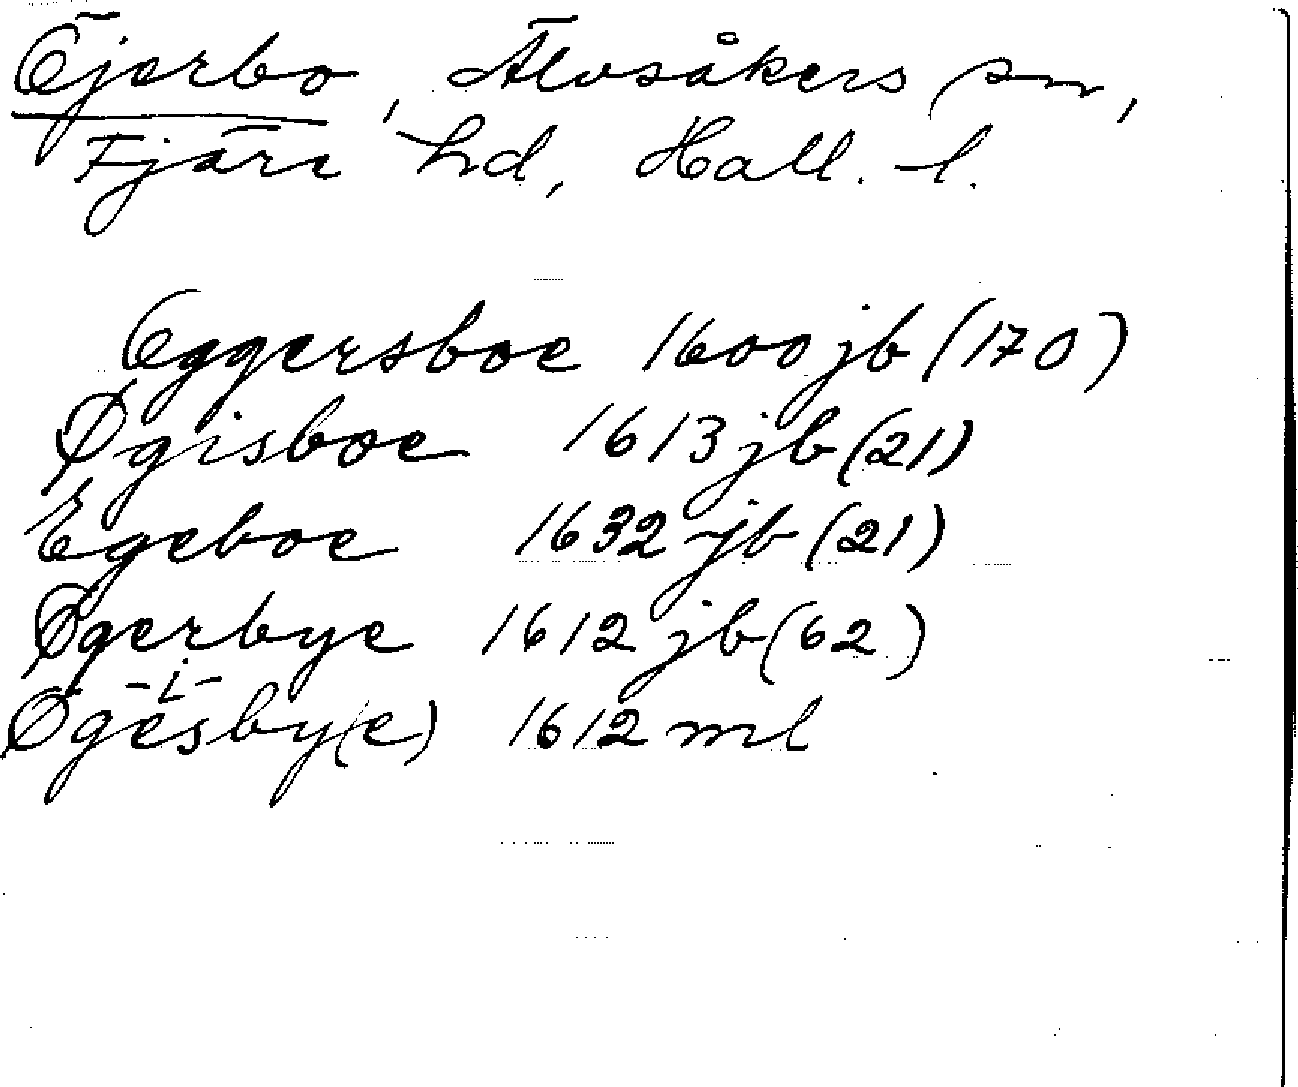 Öjerbo, Älvsåkers sn,
Fjäre hd, Hall. l.
Øggersboe 1600 jb (170)
Øgisboe 1613 jb (21)
Egeboe 1632 jb (21)
Øgerbye 1612 jb (62)
-i-
Øgesby(e) 1612 ml